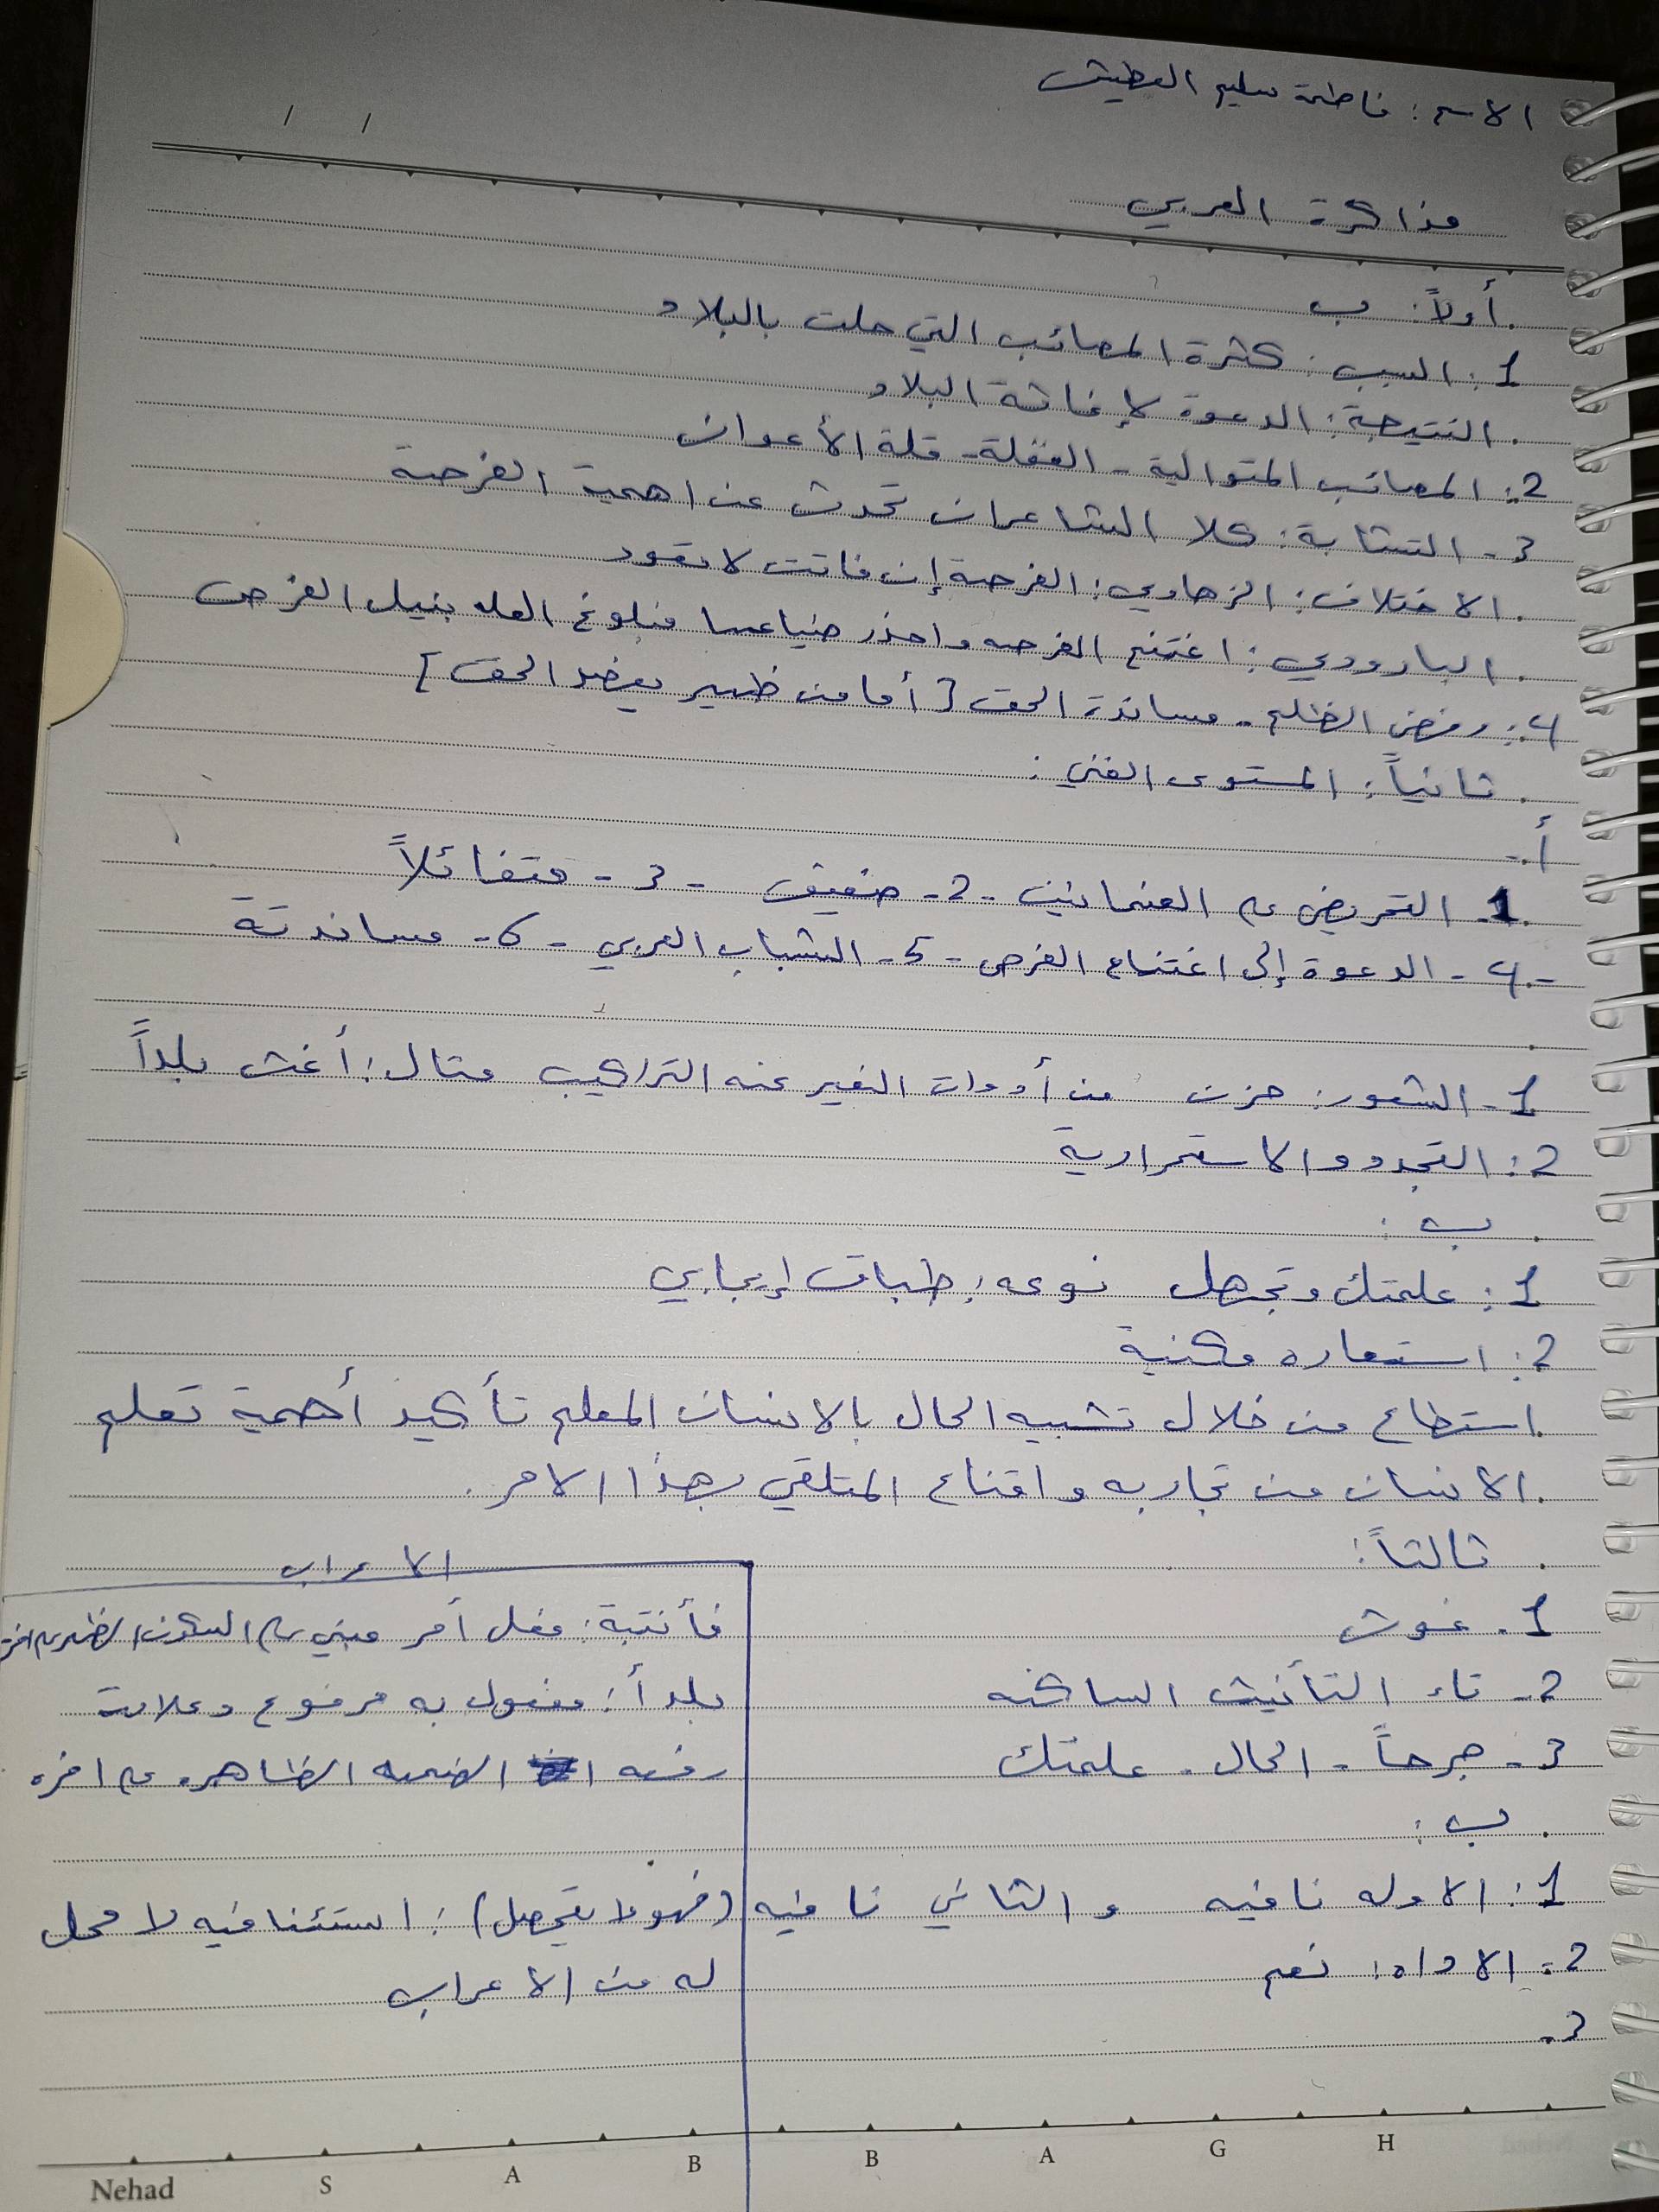 الاسم: فاطمة سليم العطيش
مذاكرة العربي
أولاً: ب
1: السبب: كثرة المصائب التي حلت بالبلاد
النتيجة: الدعوة لإغاثة البلاد
2: المصائب المتوالية - الغفلة - قلة الأعوان
3- التشابة: كلا الشاعران تحدث عن اهمية الفرصة
الاختلاف: الزهاوي: الفرصة إن فاتت لا تعود
البارودي: اغتنم الفرصه واحذر ضياعها فبلوغ العله بنيل الفرص
4: رفض الظلم - مساندة الحق [أما من ظهير يعضد الحق]
ثانياً: المستوى الفني:
أ-
1- التحريض على العثمانين - 2- ضيق - 3- متفائلاً
4- الدعوة إلى اغتنام الفرص - 5- الشباب العربي - 6- مساندتة
1- الشعور: حزن من أدوات التعبير عنه التراكيب مثال: أغث بلداً
2: التجدد والاستمرارية
ب:
1: علمتك وتجهل نوعه: طباق إيجابي
2: استعاره مكنية
استطاع من خلال تشبيه الحال بالانسان المعلم تأكيد أهمية تعلم
الانسان من تجاربه واقناع المتلقي بهذا الامر.
ثالثاً:
1. غوث
2- تاء التأنيث الساكنه
3- جرحاً - الحال - علمتك
ب:
1: الاوله نافيه و الثاني نافيه
2: الاداه: نعم
3.
الاعراب
فأنتبة: فعل أمر مبني على السكون الظاهر على اخره
بلداً: مفعول به مرفوع وعلامة
رفعه الضمه الظاهره على اخره
(فهو لا يتمهل): استئنافيه لا محل
له من الاعراب
Nehad S A B B A G H